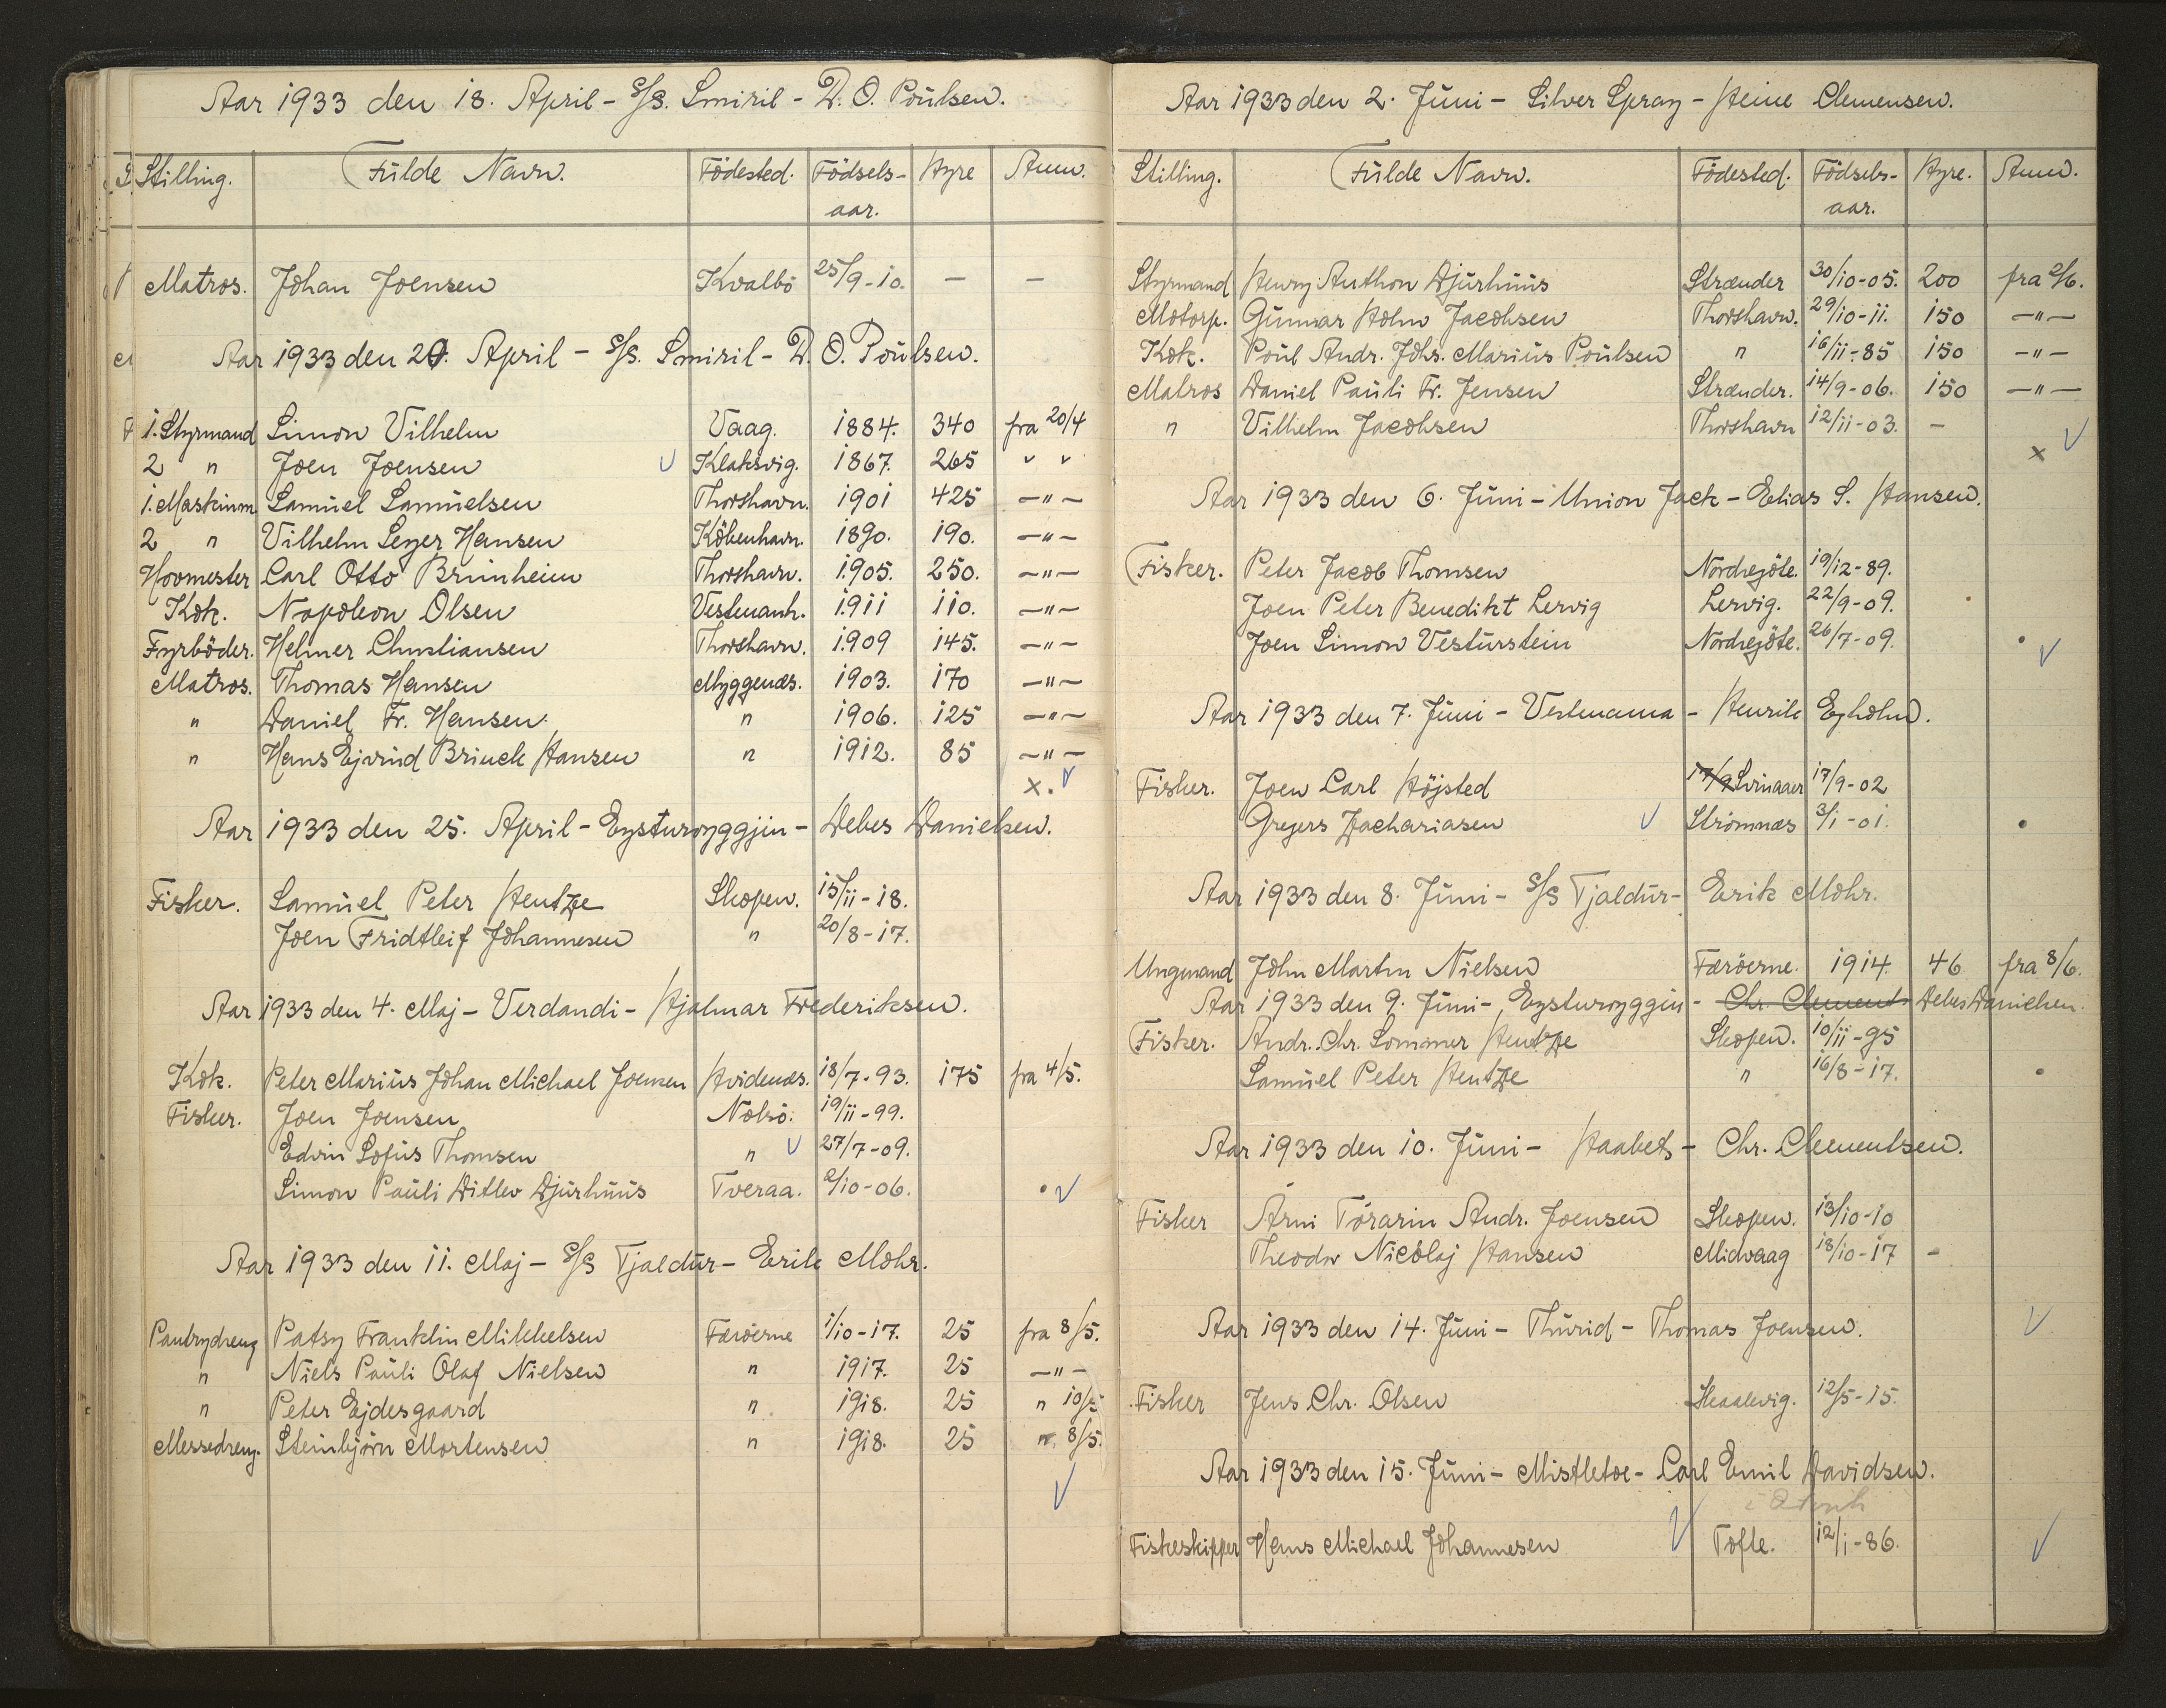 Aar 1933 den 18. April - S/S. Smiril - D. O. Poulsen.
Stilling. Fulde Navn. Födested. Födsels- Hyre Anm.
aar.
Matros. Johan Joensen Kvalbö 25/9-10. — —
Aar 1933 den 20. April - S/S. Smiril - D. O. Poulsen.
1. Styrmand Simon Vilhelm Vaag. 1884. 340 fra 20/4
2 " Joen Joensen Klaksvig. 1867. 265 " "
1. Maskinm. Samuel Samuelsen Thorshavn. 1901 425 —"—
2 " Vilhelm Sejer Hansen Köbenhavn. 1890. 190. —"—
Hovmester Carl Otto Brünheim Thorshavn. 1905. 250. —"—
Kok. Napoleon Olsen Vestmanh. 1911 110. —"—
Fyrböder. Helmer Christiansen Thorshavn. 1909 145. —"—
Matros. Thomas Hansen Myggenæs. 1903. 170 —"—
" Daniel Fr. Hansen " 1906. 125 —"—
" Hans Ejvind Brinck Hansen " 1912. 85 —"—
x.
Aar 1933 den 25. April - Eysturoyggjin - Debes Danielsen.
Fisker. Samuel Peter Hentze Skopen. 15/11-18.
Joen Fridtleif Johannesen " 20/8-17.
Aar 1933 den 4. Maj - Verdandi - Hjalmar Frederiksen.
Kok. Peter Marius Johan Michael Joensen Hvidenæs. 18/7-93. 175 fra 4/5.
Fisker. Joen Joensen Nolsö. 19/11-99.
Edvin Sofus Thomsen " 27/7-09.
Simon Pauli Ditlev Djurhuus Tveraa. 2/10-06.
Aar 1933 den 11. Maj - S/S Tjaldur - Erik Mohr.
Pantrydreng Patsy Franklin Mikkelsen Færöerne 1/10-17. 25 fra 8/5.
" Niels Pauli Olaf Nielsen " 1917. 25 —"—
" Peter Ejdesgaard " 1918. 25 " 10/5
Messedreng. Steinbjörn Mortensen " 1918. 25 " 8/5.
Aar 1933 den 2. Juni - Silver Spray - Heine Clemensen.
Stilling. Fulde Navn. Födested. Födsels- Hyre. Anm.
aar.
Styrmand Henry Anthon Djurhuus Strænder 30/10-05. 200 fra 2/6.
Motorp. Gunnar Holm Jacobsen Thorshavn. 29/10-11. 150 —"—
Kok. Poul Andr. Johs. Marius Poulsen " 16/11-85 150 —"—
Matros Daniel Pauli Fr. Jensen Strænder. 14/9-06. 150 —"—
" Vilhelm Jacobsen Thorshavn 12/11-03. -
x
Aar 1933 den 6. Juni - Union Jack - Elias S. Hansen.
Fisker. Peter Jacob Thomsen Nordregöte. 19/12-89.
Joen Peter Benedikt Lervig Lervig. 22/9-09.
Joen Simon Vesturstein Nordregöte. 26/7-09.
Aar 1933 den 7. Juni - Vestmanna - Henrik Egholm.
Fisker. Joen Carl Höjsted 17/9 Svinaaer 17/9-02
Gregers Zachariasen Strömnæs 3/1-01.
Aar 1933 den 8. Juni - S/S Tjaldur - Erik Mohr.
Ungmand John Martin Nielsen Færöerne. 1914. 46 fra 8/6.
Aar 1933 den 9. Juni - Eysturoyggin - Chr. Clements Debes Danielsen.
Fisker. Andr. Chr. Sommer Hentze Skopen. 10/11-95
Samuel Peter Hentze " 16/8-17.
Aar 1933 den 10. Juni - Haabets - Chr. Clementsen.
Fisker Arni Tórarin Andr. Joensen Skopen. 13/10-10
Theodor Nicolaj Hansen Midvaag 18/10-17 -
Aar 1933 den 14. Juni - Thurid - Thomas Joensen.
Fisker Jens Chr. Olsen Skaalevig. 12/5-15.
Aar 1933 den 15. Juni - Mistletoe - Carl Emil Davidsen.
Fiskeskipper Hans Michael Johannesen Tofte. 12/1-86.